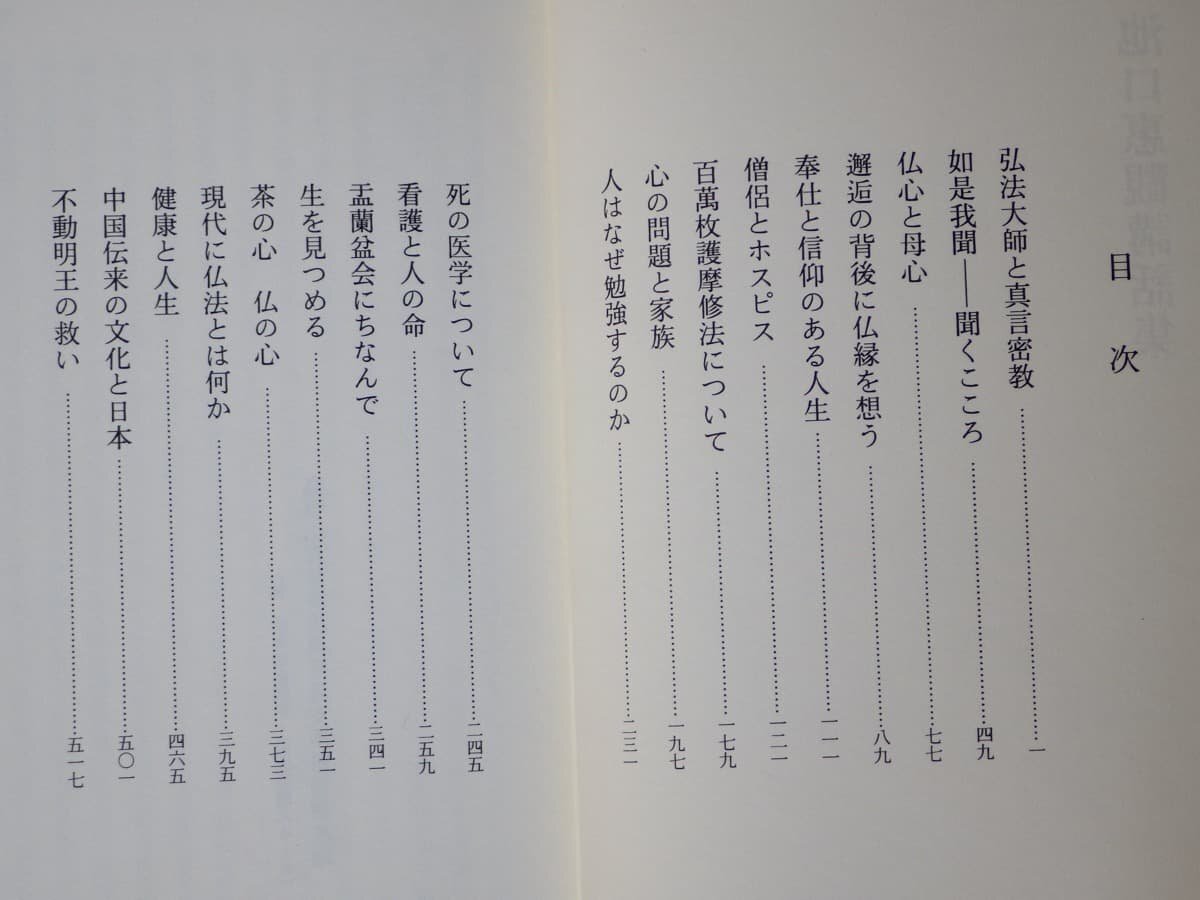 池口恵観講話集
目次
弘法大師と真言密教……一
如是我聞――聞くこころ……四九
仏心と母心……七七
邂逅の背後に仏縁を想う……八九
奉仕と信仰のある人生……一一一
僧侶とホスピス……一二一
百萬枚護摩修法について……一七九
心の問題と家族……一九七
人はなぜ勉強するのか……二三一
死の医学について……二四五
看護と人の命……二五九
盂蘭盆会にちなんで……三四一
生を見つめる……三五一
茶の心　仏の心……三七三
現代に仏法とは何か……三九五
健康と人生……四六五
中国伝来の文化と日本……五〇一
不動明王の救い……五一七